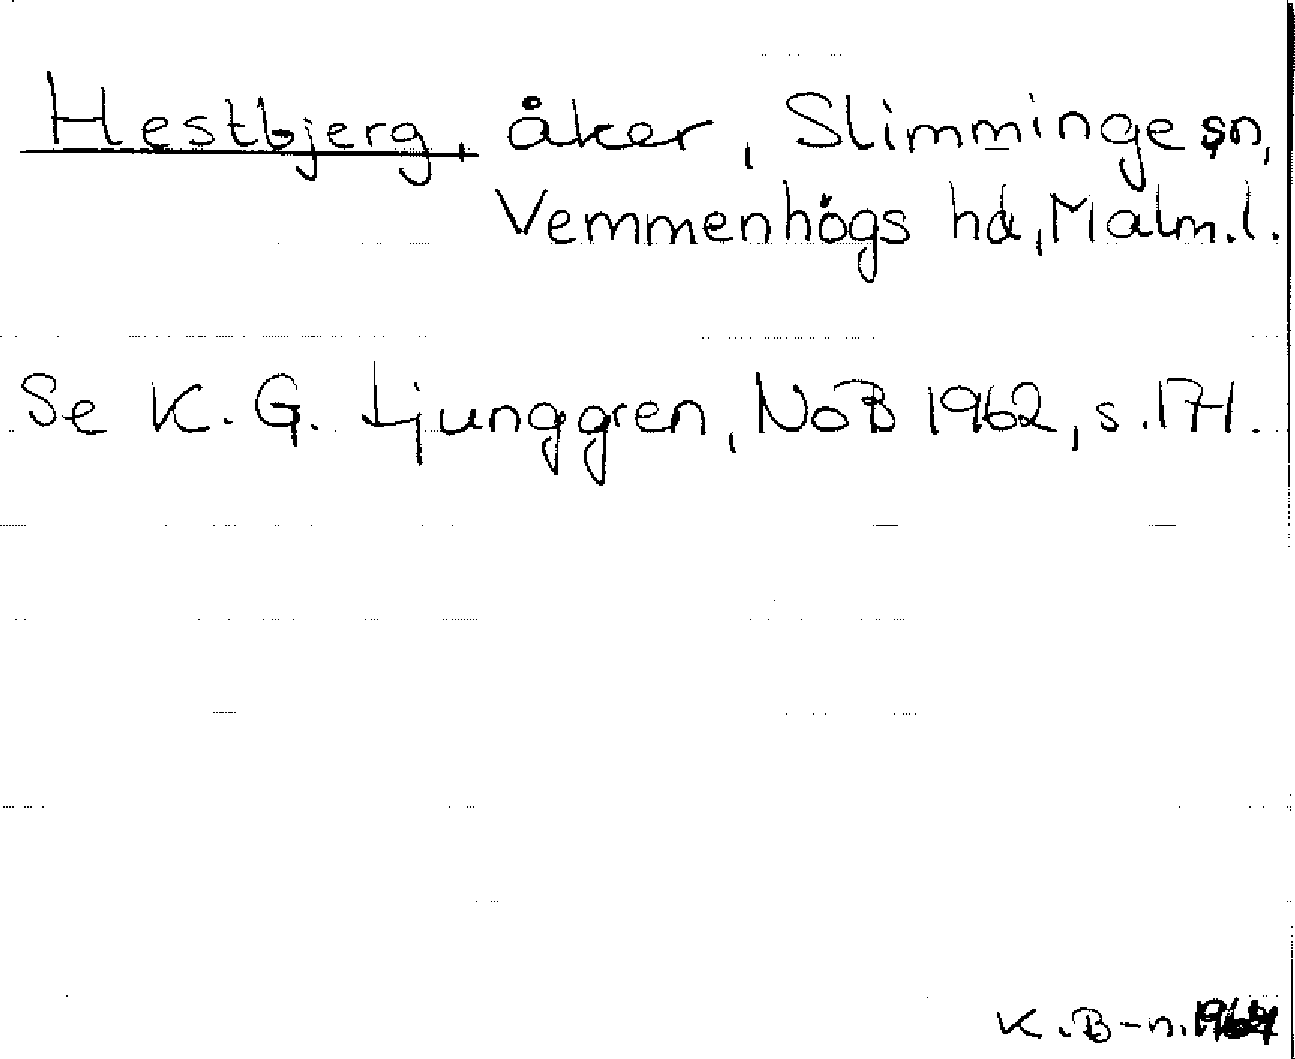 Hestbjerg, åker, Slimminge sn,
Vemmenhögs hd, Malm.l.
Se K. G. Ljunggren, NoB 1962, s. 174.
K.B-n.